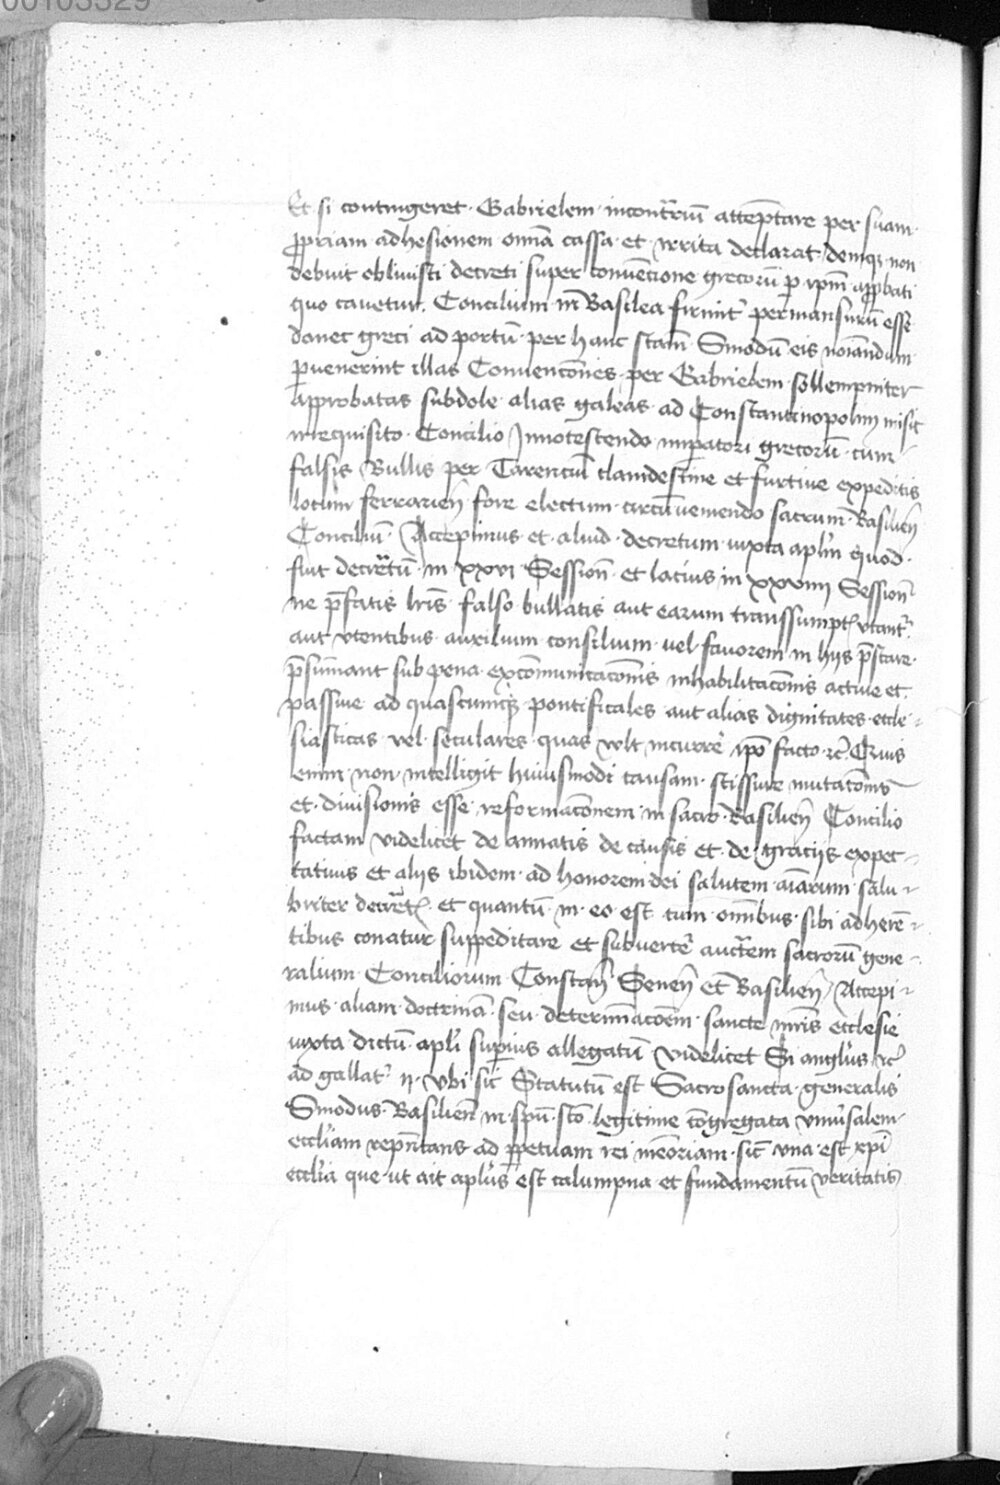 00103329
Et si contingeret Gabrielem incontrariũ atteptare per suam
ppriam adhesionem omnia cassa et irrita declarat demq; non
debuit oblivisti decreti super convẽcione grecorũ p ipm approbati
quo cavetur Concilium in Basilea firmit permansurũ esse
donec greci ad portũ per hanc stam Sinodũ eis noiandum
pvenerint illas Convencões per Gabrielem sollempniter
approbatas subdole alias galeas ad Constantinopolim misit
irrequisito Concilio Innotescendo impatori grecorũ cum
falsis Bullis per Tarentiũ clamdestine et furtive expeditis
locum ferrarieñ fore electum circũveniendo sacrum Basilieñ
Conciliũ Accepimus et aliud decretum iuxta aplm quod
fuit decretũ in xxvi Session et lacius in xxxviii Session
ne pfatis lris falso bullatis aut earum transsumpt utant
aut utentibus auxilium consilium vel favorem in hijs pstare
psumant sub pena excõmunicacõnis inhabilitacõnis active et
passive ad quascumq; pontificales aut alias dignitates eccle
siasticas vel seculares quas vlt incurre ipo facto rc Quis
enim non intelligit huiusmodi causam scissure mutacõnis
et divisionis esse reformacõnem in sacro Basilieñ Concilio
factam videlicet de annatis de causis et de gracijs expec
tativis et alijs ibidem ad honorem dei salutem aiarum salu
briter decret et quantũ in eo est cum omibus sibi adherẽ
tibus conatur suppeditare et subverte auctẽm sacrorũ gene
ralium Conciliorum Constañ Seneñ et Basilieñ Accepi
mus aliam doctrinã seu determinacõem sancte mris ecclesie
iuxta dictũ apli supius allegatũ videlicet Si anglus rc
ad gallat 1 Ubi sic Statutũ est Sacrosancta generalis
Sinodus Basilieñ in spũ sco legitime cõgregata univsalem
eccliam repñtans ad ppetuam rei memoriam sic una est xpi
ecclia que ut ait aplus est calumpna et fundamentũ veritatis